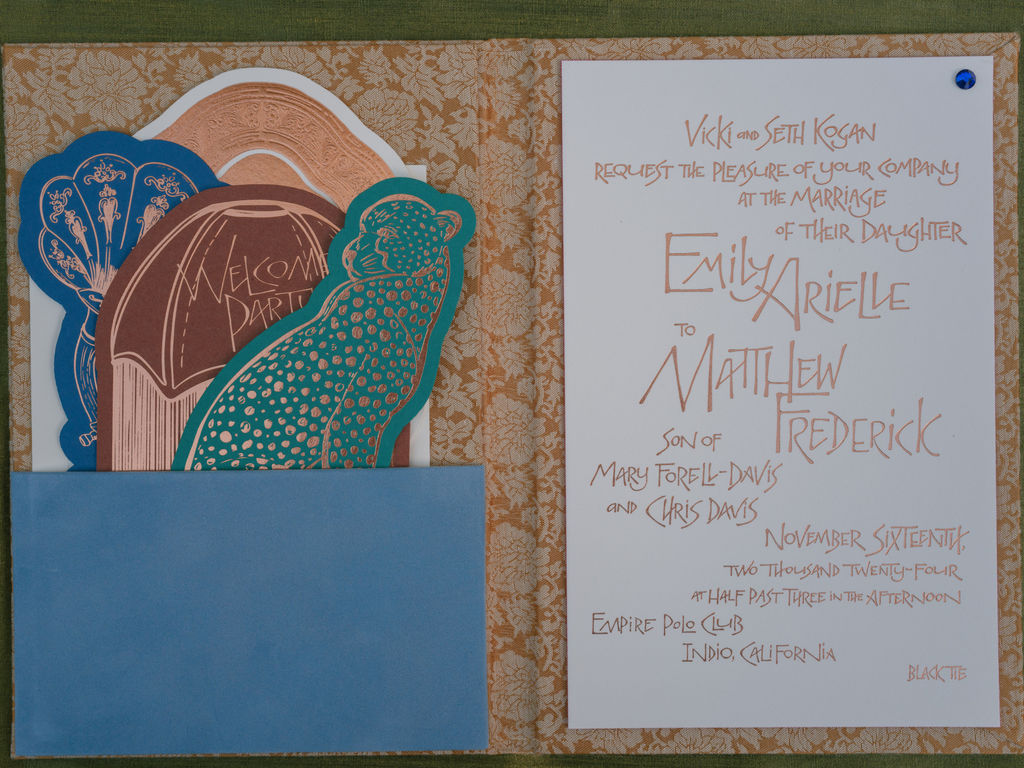 WELCOME
PARTY
VICKI AND SETH KOGAN
REQUEST THE PLEASURE OF YOUR COMPANY
AT THE MARRIAGE
OF THEIR DAUGHTER
EMILY ARIELLE
TO
MATTHEW
FREDERICK
SON OF
MARY FORELL-DAVIS
AND CHRIS DAVIS
NOVEMBER SIXTEENTH,
TWO THOUSAND TWENTY-FOUR
AT HALF PAST THREE IN THE AFTERNOON
EMPIRE POLO CLUB
INDIO, CALIFORNIA
BLACK TIE